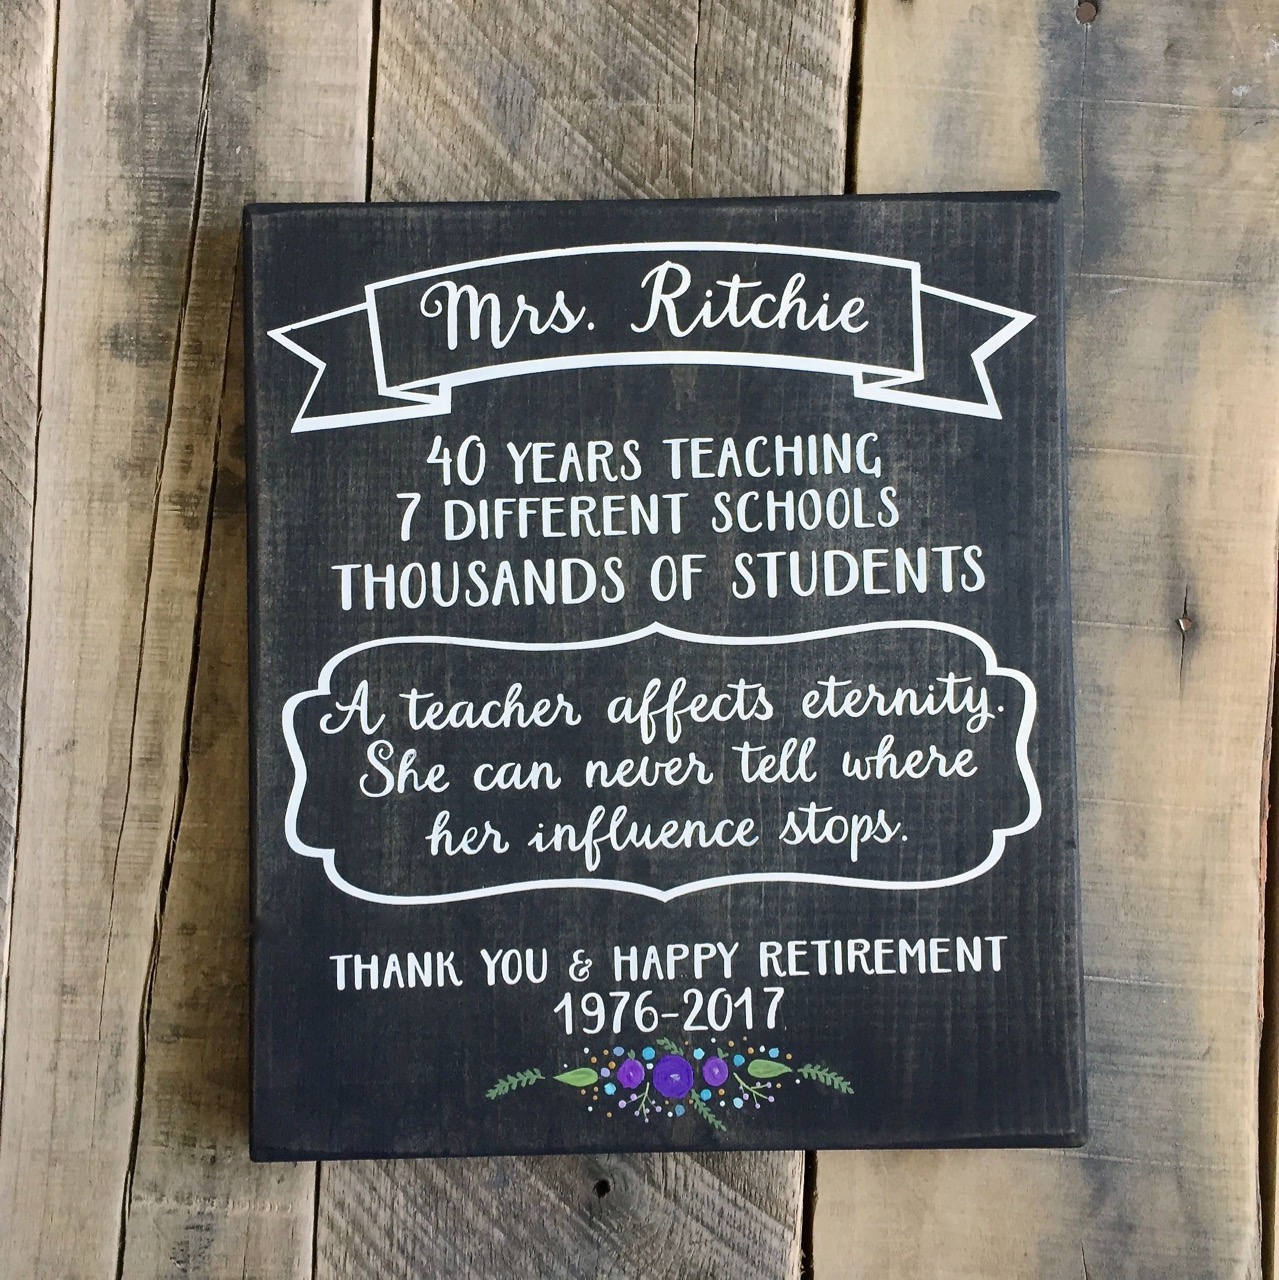 Mrs. Ritchie
40 YEARS TEACHING
7 DIFFERENT SCHOOLS
THOUSANDS OF STUDENTS
A teacher affects eternity.
She can never tell where
her influence stops.
THANK YOU & HAPPY RETIREMENT
1976-2017